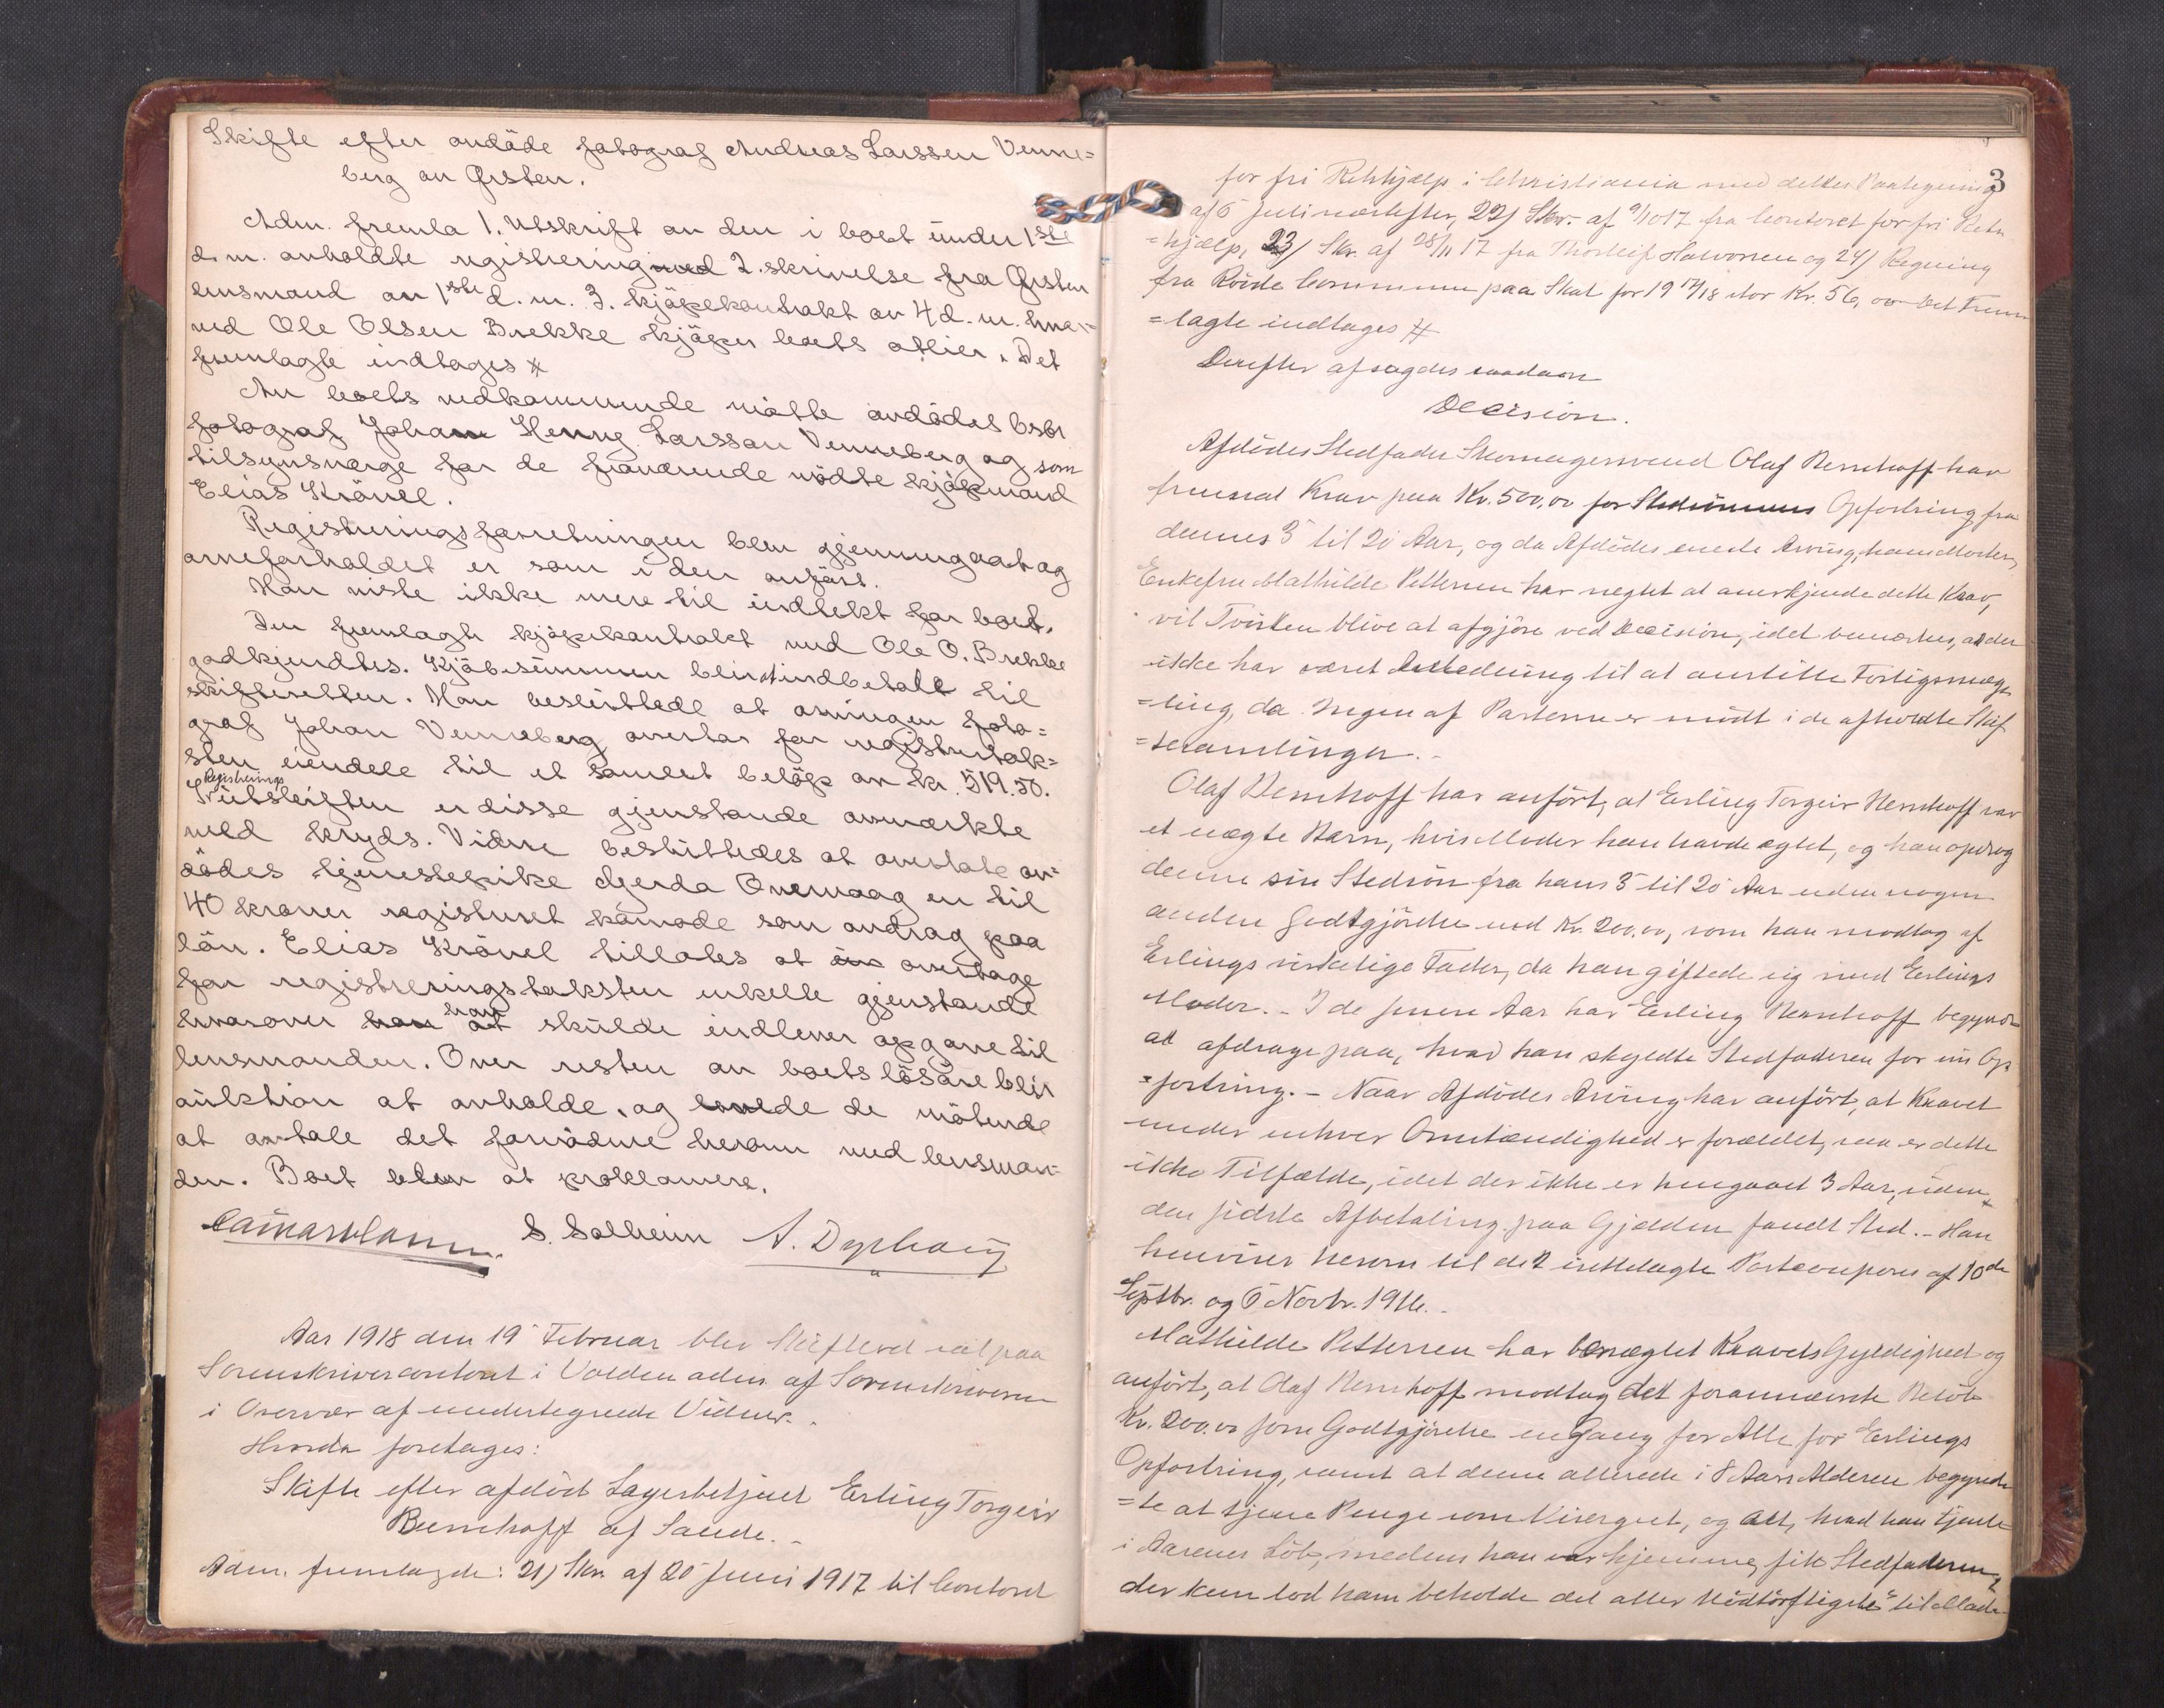 Skifte efter avdöde fotograf Andreas Larssen Venne=
berg av Ørsten.
Adm. fremla 1. Utskrift av den i boet under 1ste
d. m. avholdte registrering 2. skrivelse fra Ørsten
lensmand av 1ste d. m. 3. kjöpekontrakt av 4 d. m. hvor-
ved Ole Olsen Brekke kjöper boets atlier. Det
fremlagte indtages #
Av boets vedkommende mötte avdödes bror
fotograf Johan Henny Larssen Venneberg og som
tilsynsverge for de fraværende mödte kjöpmand
Elias Krövel.
Registreringsforretningen blev gjennemgaat og
arveforholdet er som i den anfört.
Man viste ikke mere til indtekt for boet.
Den fremlagte kjöpekontrakt med Ole O. Brekke
godkjendtes. Kjöbesummen blir at indbetale til
skifteretten. Man besluttede at arvingen foto=
graf Johan Venneberg overtar for registertak=
sten eiendele til et samlet belöp av kr. 519.50.
I registrerings
utskriften er disse gjenstande avmerkte
med kryds. Videre besluttedes at overlate av=
dödes tjenestepike Gjerda Overvaag en til
40 kroner registreret komode som andrag paa
lön. Elias Krövel tillates at overtage
for registreringstaksten enkelte gjenstande
hvorover han skulde indlever opgave til
lensmanden. Over resten av boets lösöre blir
auktion at avholde, og de mötende
at avtale det fornödne herom med lensman=
den. Boet blev at proklamere.
S. Solheim A. Döphaug
Aar 1918 den 19 Februar blev Skifteret sat paa
Sorenskrivercontoret i Volden adm. af Sorenskriveren
i Overvær af undertegnede Vidner.
Hvorda foretages:
Skifte efter afdöd Lagerbetjent Erling Torgeir
Bernhoff af Sande.
Adm. fremlagde: 21) Skr. af 20 Juni 1917 til Contoret
3
for fri Retshjælp i Christiania med dettes Paategning
af 5 Juli næstefter, 22) Skr. af 9/10 17 fra Contoret for fri Rets
=hjælp, 23) Skr. af 28/11 17 fra Thorleif Halvorsen og 24) Regning
fra Røvde Commune paa Skat for 19 17/18 stor Kr. 56,00 Det Frem
=lagte indtages #
Derefter afsagdes saadan
Decision.
Afdödes Stedfader Skomagersvend Olaf Bernhoff har
fremsat Krav paa Kr. 500,00 for Stedsönnens Opfostring fra
dennes 3 til 20 Aar, og da Afdödes eneste Arving, hans Moder,
Enkefru Mathilde Pettersen har neglet at anerkjende dette Krav,
vil Tvisten blive at afgjöre ved Decision, idet bemærkes, at der
ikke har været Anledning til at anstille Forligsmæg
=ling, da Ingen af Parterne er mödt i de afholdte Skif
=tesamlinger.
Olaf Bernhoff har anfört, at Erling Torgeir Bernhoff var
et uægte Barn, hvis Moder han havde ægtet, og han opdrog
denne sin Stedsön fra hans 3 til 20 Aar uden nogen
anden Godtgjörelse end Kr. 200,00, som han modtog af
Erlings virkelige Fader, da han giftede sig med Erlings
Moder. – I de senere Aar har Erling Bernhoff begyndt
at afdrage paa, hvad han skyldte Stedfaderen for sin Op
=fostring. – Naar Afdödes Arving har anfört, at Kravet
under enhver Omstændighed er forældet, saa er dette
ikke Tilfælde, idet der ikke er hengaaet 3 Aar, siden
den sidste Afbetaling paa Gjælden fandt Sted. – Han
henviser herom til de 2 fremlagte Postcouponer af 10de
Septbr. og 6 Novbr. 1916.
Mathilde Pettersen har benægtet Kravets Gyldighed og
anfört, at Olaf Bernhoff modtog det forannævnte Belöb
Kr. 200,00 som Godtgjörelse engang for Alle for Erlings
Opfostring, samt at denne allerede i 8 Aars Alderen begynd
=te at tjene Penge som Visergut, og alt, hvad han tjente
i Aarenes Löb, medens han var hjemme, fik Stedfaderen,
der kun lod ham beholde det aller Nödtörftigste til